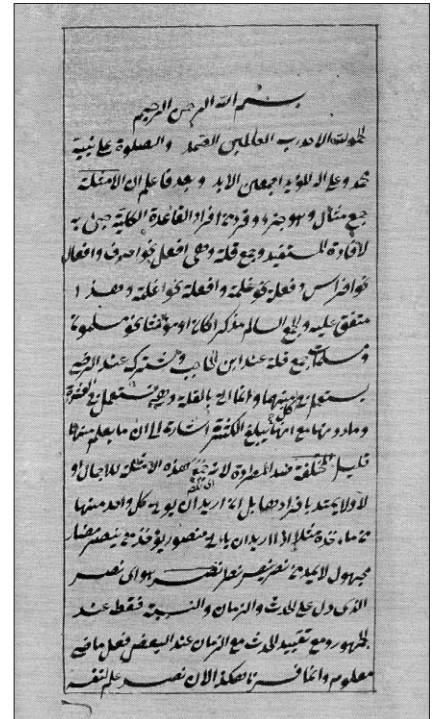 بسم الله الرحمن الرحيم
الحمد لله الاحد رب العالمين الصمد والصلوة على نبيه
محمد وعلى اله المؤيد اجمعين الابد وبعد فاعلم ان الامثلة
جمع مثال وهو جزء وفرد من افراد القاعدة الكلية جئ به
لافادة المستفيد وجمع قلة وهى افعل نحو احرف وافعال
نحو افراس وفعلة نحو غلمة وافعلة نحو اغلمة وهذا
متفق عليه والجمع السالم مذكرا كان او مؤنثا نحو مسلمون
ومسلمات جمع قلة عند ابن الحاجب ومشترك عند الرضى
يستعمل فى كل منهما وانما اتى بالقلة وهى يستعمل فى العشرة
وما دونها مع انها يبلغ الكثرة اشارة الى ان ما يعلم منها
قليل المختلفة ضد المطردة لانه هذه الامثلة للاجمال او
لا ولا يعتد بافرادها بل اذا اريد ان يؤتى كل واحد منها
من مثلا اذا اريد ان يأتى منصور يؤخذ من ينصر مضارع
مجهول من نصر ينصر نصرا نصر هو اى نصر
الذى دل على الحدث والزمان والنسبة فقط عند
الجمهور ومع تقييد الحدث مع الزمان عند البعض فعل ماض
معلوم وانما هكذا لان نصر علم لنفسه